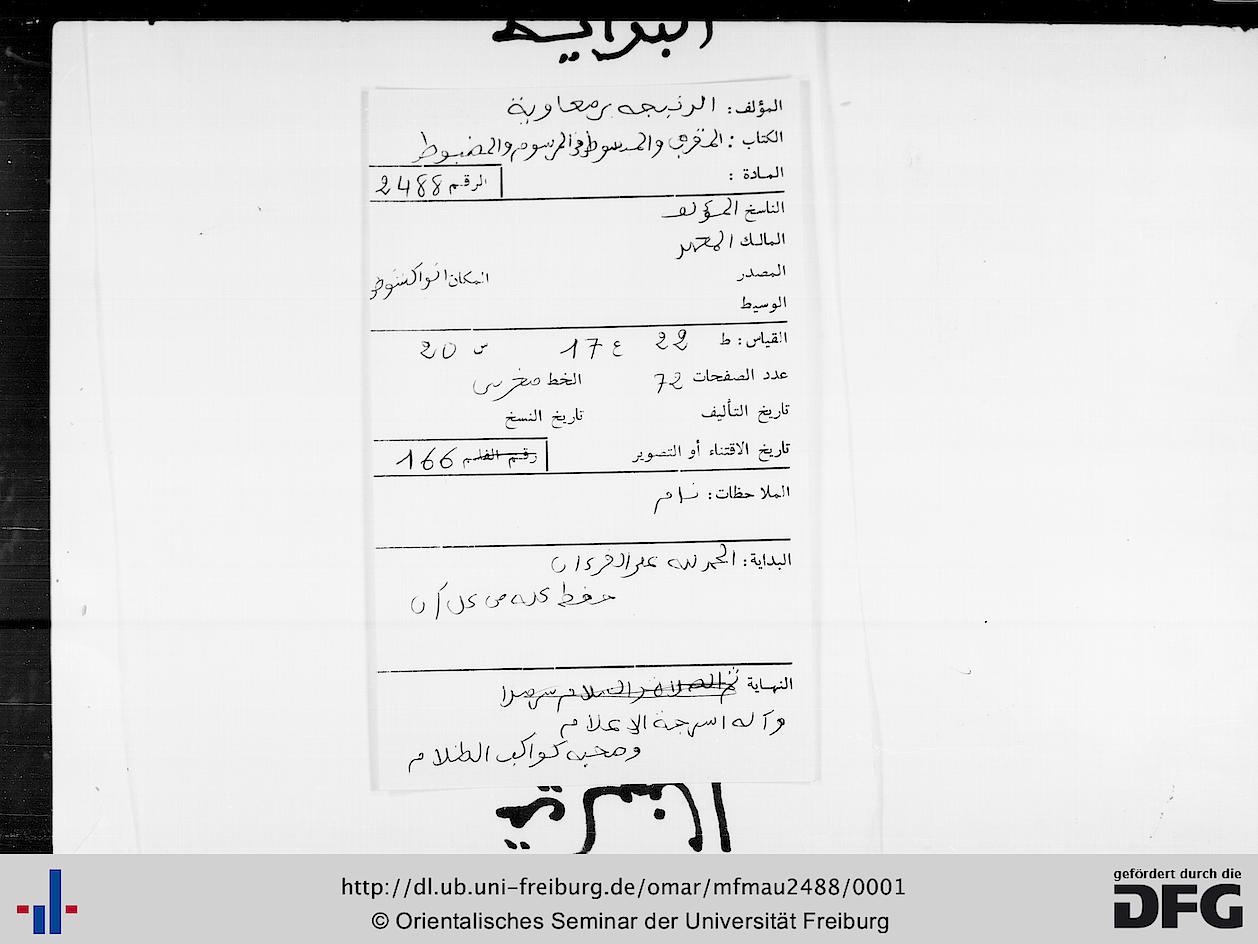 البداية
المؤلف: الرنيجه بن معاوية
الكتاب: المفرق والمبسوط في المرسوم والمضبوط
المادة:
الرقم 2488
الناسخ المؤلف
المالك
المصدر
المكان انواكشوط
الوسيط
القياس: ط 22 ع 17 س 20
عدد الصفحات 72 الخط مغربي
تاريخ التأليف تاريخ النسخ
تاريخ الاقتناء أو التصوير رقم الفلم 166
الملاحظات: تام
البداية: الحمد لله على القرءان
حفظ كله من كل ان
النهاية ثم الصلاة والسلام سرمدا
وآله اسرجة الاعلام
وصحبه كواكب الظلام
http://dl.ub.uni-freiburg.de/omar/mfmau2488/0001
© Orientalisches Seminar der Universität Freiburg
gefördert durch die
DFG